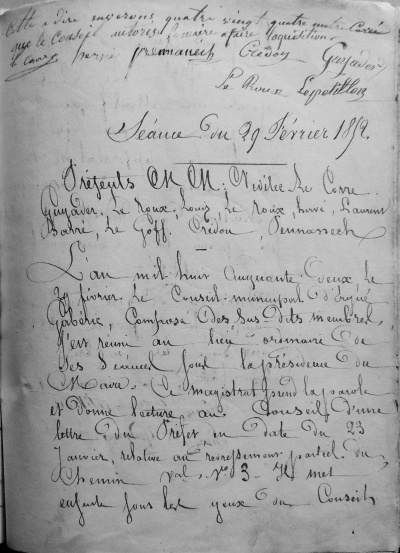 cette à dire environs quatre vingt quatre metre Carré
que le Conseil autorise le maire a faire l'aquisition
le Corre hervé pennanech Crédou Guyader
Le Roux Lepetillon
Séance du 29 Février 1852.
Présents MM. Nédélec Le Corre
Guyader, Le Roux, Louis, Le Roux, hervé, Laurent
Barré, Le Goff, Crédou, Pennanech
L'an mil huit cinquante deux, le
29 février, le Conseil municipal d'Ergué
Gabéric, Composé des sus dits membres,
s'est réuni au lieu ordinaire de
ses Séances sous la présidence du
Maire. Ce magistrat prend la parole
et donne lecture au Conseil d'une
lettre du Préfet en date du 23
Janvier, relative au redressement partiel du
Chemin val. No 3 - Il met
ensuite sous les yeux du Conseil,